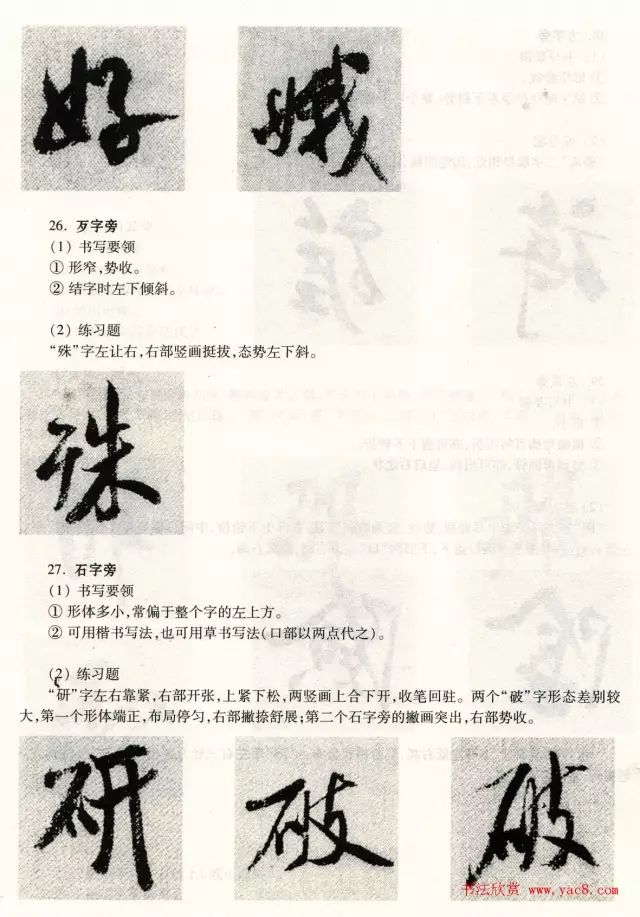 好 娥
26. 歹字旁
(1) 书写要领
① 形窄,势收。
② 结字时左下倾斜。
(2) 练习题
“殊”字左让右,右部竖画挺拔,态势左下斜。
殊
27. 石字旁
(1) 书写要领
① 形体多小,常偏于整个字的左上方。
② 可用楷书写法,也可用草书写法(口部以两点代之)。
(2) 练习题
“研”字左右靠紧,右部开张,上紧下松,两竖画上合下开,收笔回驻。两个“破”字形态差别较
大,第一个形体端正,布局停匀,右部撇捺舒展;第二个石字旁的撇画突出,右部势收。
研 破 破
书法欣赏 www.yac8.com